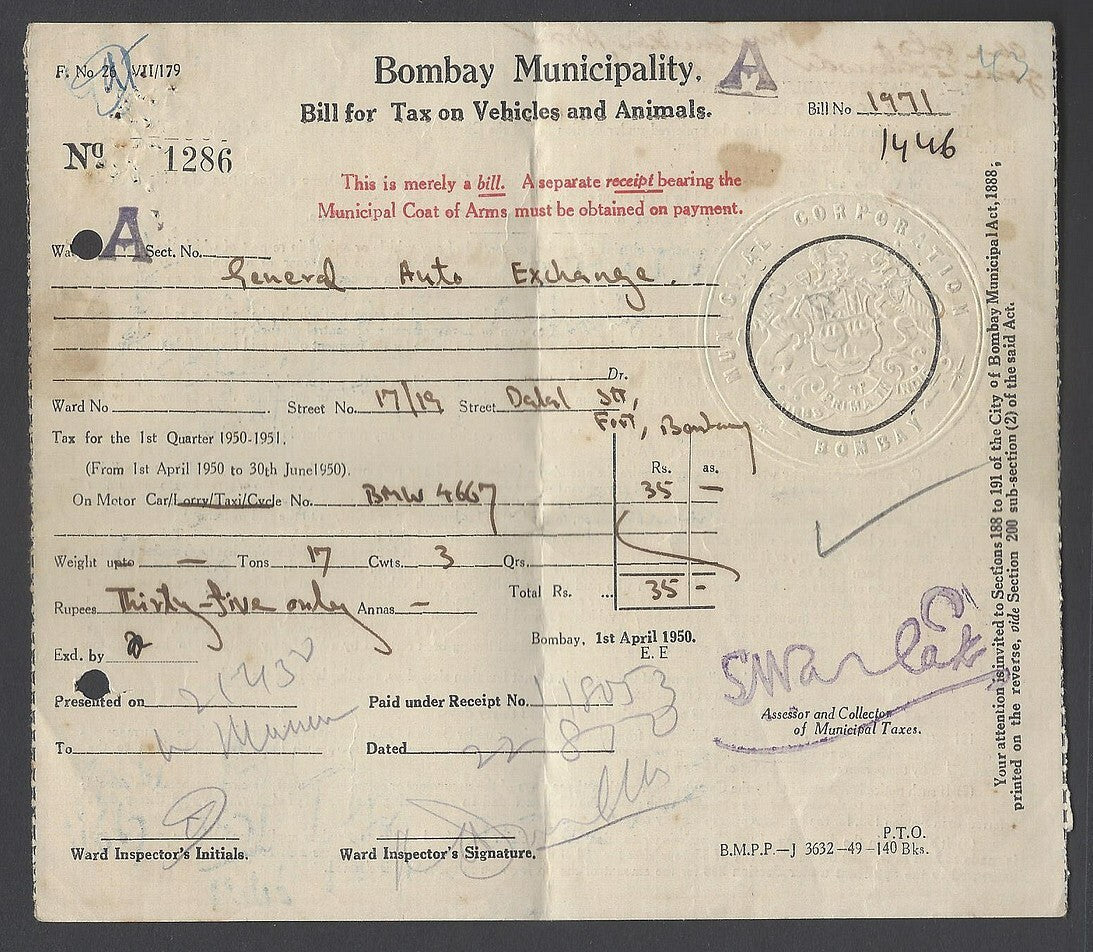 F. No 26 VII/179
Bombay Municipality. A
Bill for Tax on Vehicles and Animals.
Bill No 1971
1446
43
No 1286
This is merely a bill. A separate receipt bearing the
Municipal Coat of Arms must be obtained on payment.
A Sect. No.
General Auto Exchange.
MUNICIPAL CORPORATION
BOMBAY
Dr.
Ward No Street No. 17/19 Street Dalal Str,
Fort, Bombay
Tax for the 1st Quarter 1950-1951.
(From 1st April 1950 to 30th June 1950).
Rs. as.
On Motor Car/Lorry/Taxi/Cycle No. BMW 4667 35 —
Weight upto — Tons 17 Cwts. 3 Qrs.
Total Rs. ... 35 -
Rupees Thirty-five only Annas —
Bombay, 1st April 1950.
E. E
Exd. by
Presented on
Paid under Receipt No. 118053
Assessor and Collector
of Municipal Taxes.
To
Dated
Ward Inspector's Initials.
Ward Inspector's Signature.
P.T.O.
B.M.P.P.—J 3632—49—140 Bks.
Your attention is invited to Sections 188 to 191 of the City of Bombay Municipal Act, 1888;
printed on the reverse, vide Section 200 sub-section (2) of the said Act.